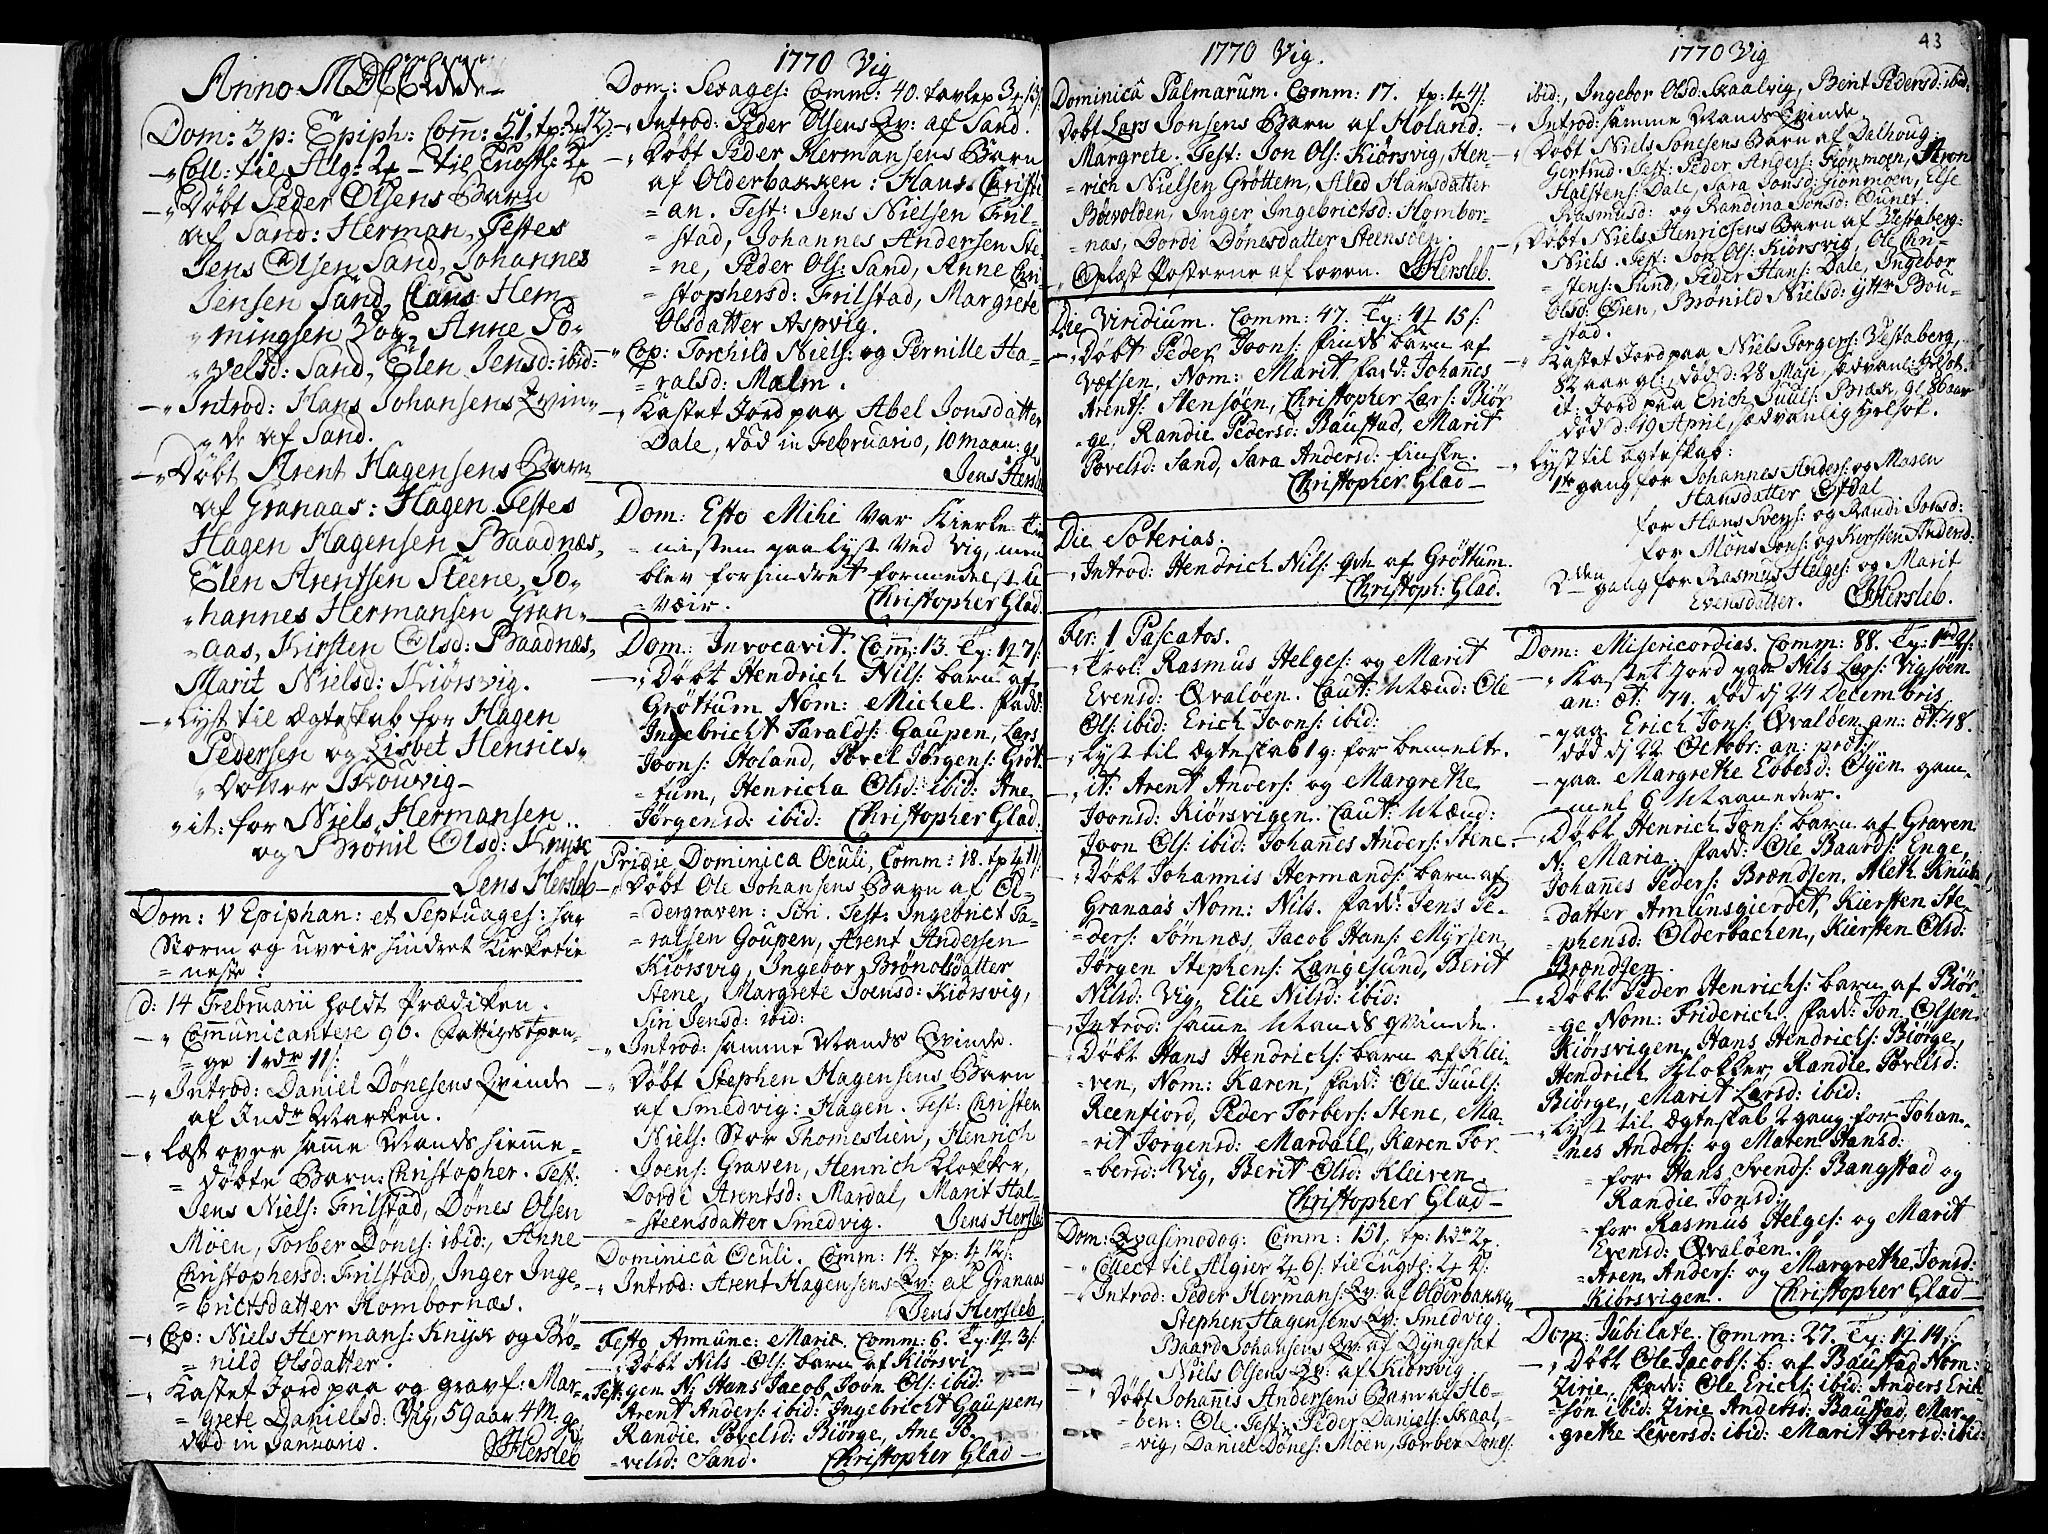 Anno MDCCLXX
Dom: 3 p: Epiph: Com̄: 51. tp:
Coll: til Alg: 2 ₰ - til Tugth: 2 ₰
Døbt Peder Olsens Barn
af Sand: Herman. Testes
Jens Olsen Sand, Johannes
Jensen Sand, Claus Hem-
mingsen Vog, Anne Po-
velsd: Sand, Elen Jensd: ibid:
Introd: Hans Johansens Qvin-
de af Sand.
Døbt Arent Hagensens Barn
af Granaas: Hagen. Testes
Hagen Hagensen Baadnæs,
Elen Arentsen Steene, Jo-
hannes Hermansen Gran-
aas, Kirsten Olsd: Baadnæs,
Marit Nielsd: Kiørsvig.
Lyst til Ægteskab for Hagen
Pedersen og Lisbet Henrics-
Dotter Skouvig
it: for Niels Hermansen
og Brønil Olsd: Knysk
Jens Hersleb
Dom: V Epiphan: et Septuages: har
Storm og uveir hindret Kirketie-
neste.
d: 14 Februarii holdt Prædiken.
Communicantere 96. Fattiges pen-
ge 1 rdr 11 s:
Introd: Daniel Dønesens Qvinde
af Indr Marken.
Læst over samme Mands hiemme-
døbte Barn: Christopher. Test:
Jens Niels: Frilstad, Dønes Olsen
Møen, Torber Dønes: ibid:, Anne
Christophersd: Frilstad, Inger Inge-
brictsdatter Hombornæs.
Cop: Niels Hermans: Knysk og Brø-
nild Olsdatter.
Kastet Jord paa og gravf: Mar-
grete Danielsd: Vig, 59 aar 4 M. gl
død in Januario. JHersleb
1770 Vig
Dom: Sexages: Comm: 40. tavlep 3 ₰
Introd: Peder Olsens Qv: af Sand.
Døbt Peder Hermansens Barn
af Olderbakken: Hans Christi-
an. Test: Jens Nielsen Fril-
stad, Johannes Andersen Ste-
ne, Peder Ols: Sand, Anne Chri-
stophersd: Frilstad, Margrete
Olsdatter Aspvig.
Cop: Torchild Niels: og Pernille Ha-
ralsd: Malm.
Kastet Jord paa Abel Jonsdatter
Dale, død in Februario, 10 maan: gl
Jens Hersleb
Dom: Esto Mihi Var Kierke Tie-
nisten paalyst ved Vig, men
blev forhindret formedelst u-
væir. Christopher Glad.
Dom: Invocavit. Com̄: 13. Tp: 1 ₰ 7 s:
Døbt Hendrich Nils: barn af
Grøttum Nom: Michel. Fadd:
Ingebricht Taralds: Gaupen, Lars
Joons: Holand, Povel Jørgens: Grøt-
tum, Henricha Olsd: ibid: Ane
Jørgensd: ibid: Christopher Glad.
Pridie Dominica Oculi, Comm: 18. tp ₰ 11 s:
Døbt Ole Johansens Barn af Ol-
dergraven: Siri. Test: Ingebrict Ta-
ralsen Goupen, Arent Andersen
Kiørsvig, Ingebor Brønolsdatter
Stene, Margrete Joensd: Kiørsvig,
Siri Jensd: ibid:
Introd: samme Mands Qvinde.
Døbt Stephen Hagensens Barn
af Smedvig: Hagen. Test: Christen
Niels: Stor Thomeshien, Henrich
Joens: Graven, Henrich Klokker,
Dordi Arentsd: Mardal, Marit Hal-
steensdatter Smedvig. Jens Hersleb
Dominica Oculi. Comm: 14. tp: ₰ 12 s:
Introd: Arent Hagensens Qv: af Granaas
Jens Hersleb
Festo Annunc: Mariæ. Comm: 6. Tp: 1 ₰ 3 s:
Døbt Nils Ols: barn af Kiørsvi-
gen N: Hans Jacob, Joon Ols: ibid:
Arent Anders: ibid: Ingebricht Gaupen,
Randie Povelsd: Biørge, Ane Po-
velsd: Sand. Christopher Glad
1770 Vig.
Dominica Palmarum. Comm: 17. tp: 1 ₰ 4 s:
Døbt Lars Jonsens Barn af Holand:
Margrete. Test: Jon Ols: Kiørsvig, Hen-
rich Nielsen Grøttem, Aled Hansdatter
Bøevolden, Inger Ingebrictsd: Hombor-
nas, Dordi Dønesdatter Steensøen.
Oplæst Posterne af Loven. JHersleb.
Die Viridium. Comm: 47. Tp: 4 ₰ 15 s:
Døbt Peder Joons: finds barn af
Vefsen, Nom: Marit. Fadd: Johan̄es
Arents: Stensøen, Christopher Lars: Biør-
ge, Randie Pedersd: Baustad, Marit
Povelsd: Sand, Sara Andersd: finske.
Christopher Glad
Die Soterias.
Introd: Hendrich Nils: qvh af Grøttum.
Christoph: Glad.
Fer: 1 Pascatos.
Trol: Rasmus Helges: og Marit
Evensd: Qvaløen. Caut: Mænd: Ole
Ols: ibid: Erich Joons: ibid:
Lyst til Ægteskab 1 g: for bemelte.
it: Arent Anders: og Margrethe
Joonsd: Kiørsvigen. Caut: Mænd:
Joon Ols: ibid: Johan̄es Anders: Stene.
Døbt Johannis Hermands: barn af
Granaas Nom: Nils. Fadd: Jens Pe-
ders: Sømnæs, Jacob Hans: Myrsen,
Jørgen Stephens: Langesund, Berit
Nilsd: Vig, Elie Nilsd: ibid:
Introd: samme Mands qvinde.
Døbt Hans Hendrichs: barn af Klei-
ven, Nom: Karen, Fadd: Ole Juuls:
Reenfiord, Peder Torbers: Stene, Ma-
rit Jørgensd: Mardall, Karen Tor-
bersd: Vig, Berit Olsd: Kleiven.
Christopher Glad
Dom: Qvasimodog: Comm: 151, tp: 1 rdr 2 ₰.
Collect til Algier 2 ₰ 6 s: til Tugth: 2 ₰ 2 s:
Introd: Peder Hermans: Qv: af Olderbakken
Stephen Hagensens Qv: Smedvig
Baard Johansens Qv: af Dyngeset
Niels Olsens Qv: af Kiørsvig
Døbt Johan̄is Andersens Barn af Ho-
ben: Ole. Test: Peder Daniels: Skaal-
vig, Daniel Dønes: Møen, Torber Dønes:
1770 Vig
43
ibid:, Ingebor Olsd: Skaalvig, Berit Pedersd: ibid.
Introd: samme Mands Qvinde
Døbt Niels Jonesens Barn af Dalhoug:
Gertrud. Test: Peder Anders: Giønmoen, Aron
Halstens: Dale, Sara Jonsd: Giønmoen, Else
Rasmusd: og Randina Jonsd: Ouner.
Døbt Niels Henricsens Barn af Vestaberg:
Niels. Test: Jon Ols: Kiørsvig, Ole Chri-
stens: Sund, Peder Hans: Dale, Ingebor
Olsd: Øien, Brønild Nielsd: yttr Bou-
stad.
Kastet Jord paa Niels Torgers: Vestaberg,
82 aar gl:, død d: 28 Maji, sædvanl: Helsot.
it: Jord paa Erich Juuls: Bræk, gl 86 aar
død d: 19 April, sædvanlig Helsot.
Lyst til Ægteskab:
1te gang for Johannes Anders: og Maren
Hansdatter Eitdal
for Hans Svens: og Randi Jonsd:
for Møns Jons: og Kirsten Andersd:
2den gang for Rasmus Helges: og Marit
Evensdatter. JHersleb.
Dom: Misericordias. Comm: 88. Tp: 1 rd 2 s:
Kastet Jord paa Nils Lars: Vigsøen
an: æt: 74. død dj 24 Decembris
paa Erich Jons: Qvaløen an: æt: 48.
død dj 22 Octobr: an: præt:
paa Margrethe Ebbesd: Øyen gam-
mel 6 Maaneder.
Døbt Henrich Jons: barn af Graven
N: Maria. Fadd: Ole Baards: Enge,
Johan̄es Peders: Brændsen, Aleth Knuts-
datter Amunsgierdet, Kiersten Ste-
phensd: Olderbachen, Kiersten Olsd:
Brændsen.
Døbt Peder Henrichs: barn af Biør-
ge Nom: Friderich. Fadd: Jon Olsen
Kiørsvigen, Hans Hendrichs: Biørge,
Hendrich Klokker, Randie Povelsd:
Biørge, Marit Larsd: ibid:
Lyst til Ægteskab 2 gang for Johan-
nes Anders: og Maren Hansd:
for Hans Svends: Bangstad og
Randie Jonsd:
for Rasmus Helges: og Marit
Evensd: Qvaløen.
Aren Anders: og Margrethe Jonsd:
Kiørsvigen. Christopher Glad
Dom: Jubilate. Comm: 27. Tp: 1 ₰ 14 s:
Døbt Ole Jacobs: b: af Baustad Nom:
Zirie. Fadd: Ole Erichs: ibid: Anders Erich-
søn ibid: Zirie Andersd: Baustad, Mar-
grethe Leversd: ibid: Marit Iversd: ibid: